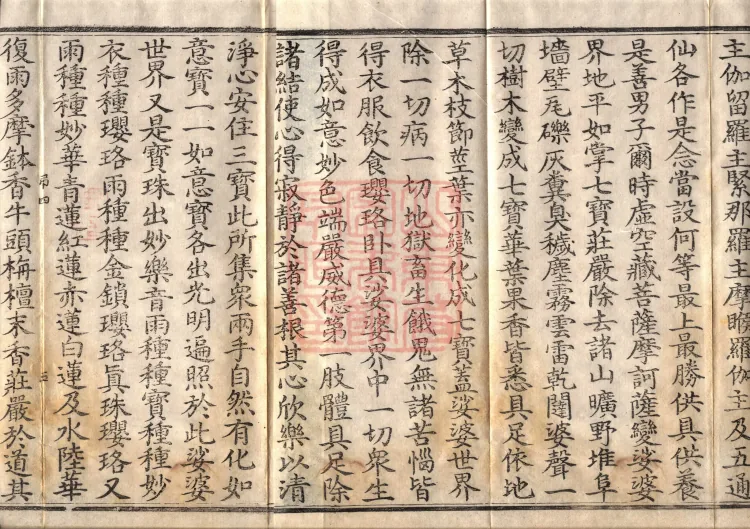 主伽留羅主緊那羅主摩睺羅伽主及五通
仙各作是念當設何等最上最勝供具供養
是善男子爾時虛空藏菩薩摩訶薩變娑婆
界地平如掌七寶莊嚴除去諸山曠野堆阜
墻壁瓦礫灰糞臭穢塵霧雲雷乾闥婆聲一
切樹木變成七寶華葉果香皆悉具足依地
草木枝節莖葉亦變化成七寶蓋娑婆世界
除一切病一切地獄畜生餓鬼無諸苦惱皆
得衣服飲食瓔珞卧具娑婆界中一切衆生
得成如意妙色端嚴威德第一肢體具足除
諸結使心得寂靜於諸善根其心欣樂以清
淨心安住三寶此所集衆兩手自然有化如
意寶一一如意寶各出光明遍照於此娑婆
世界又是寶珠出妙樂音雨種種寶種種妙
衣種種瓔珞雨種種金鎖瓔珞眞珠瓔珞又
雨種種妙華青蓮紅蓮赤蓮白蓮及水陸華
復雨多摩鉢香牛頭栴檀末香莊嚴於道其